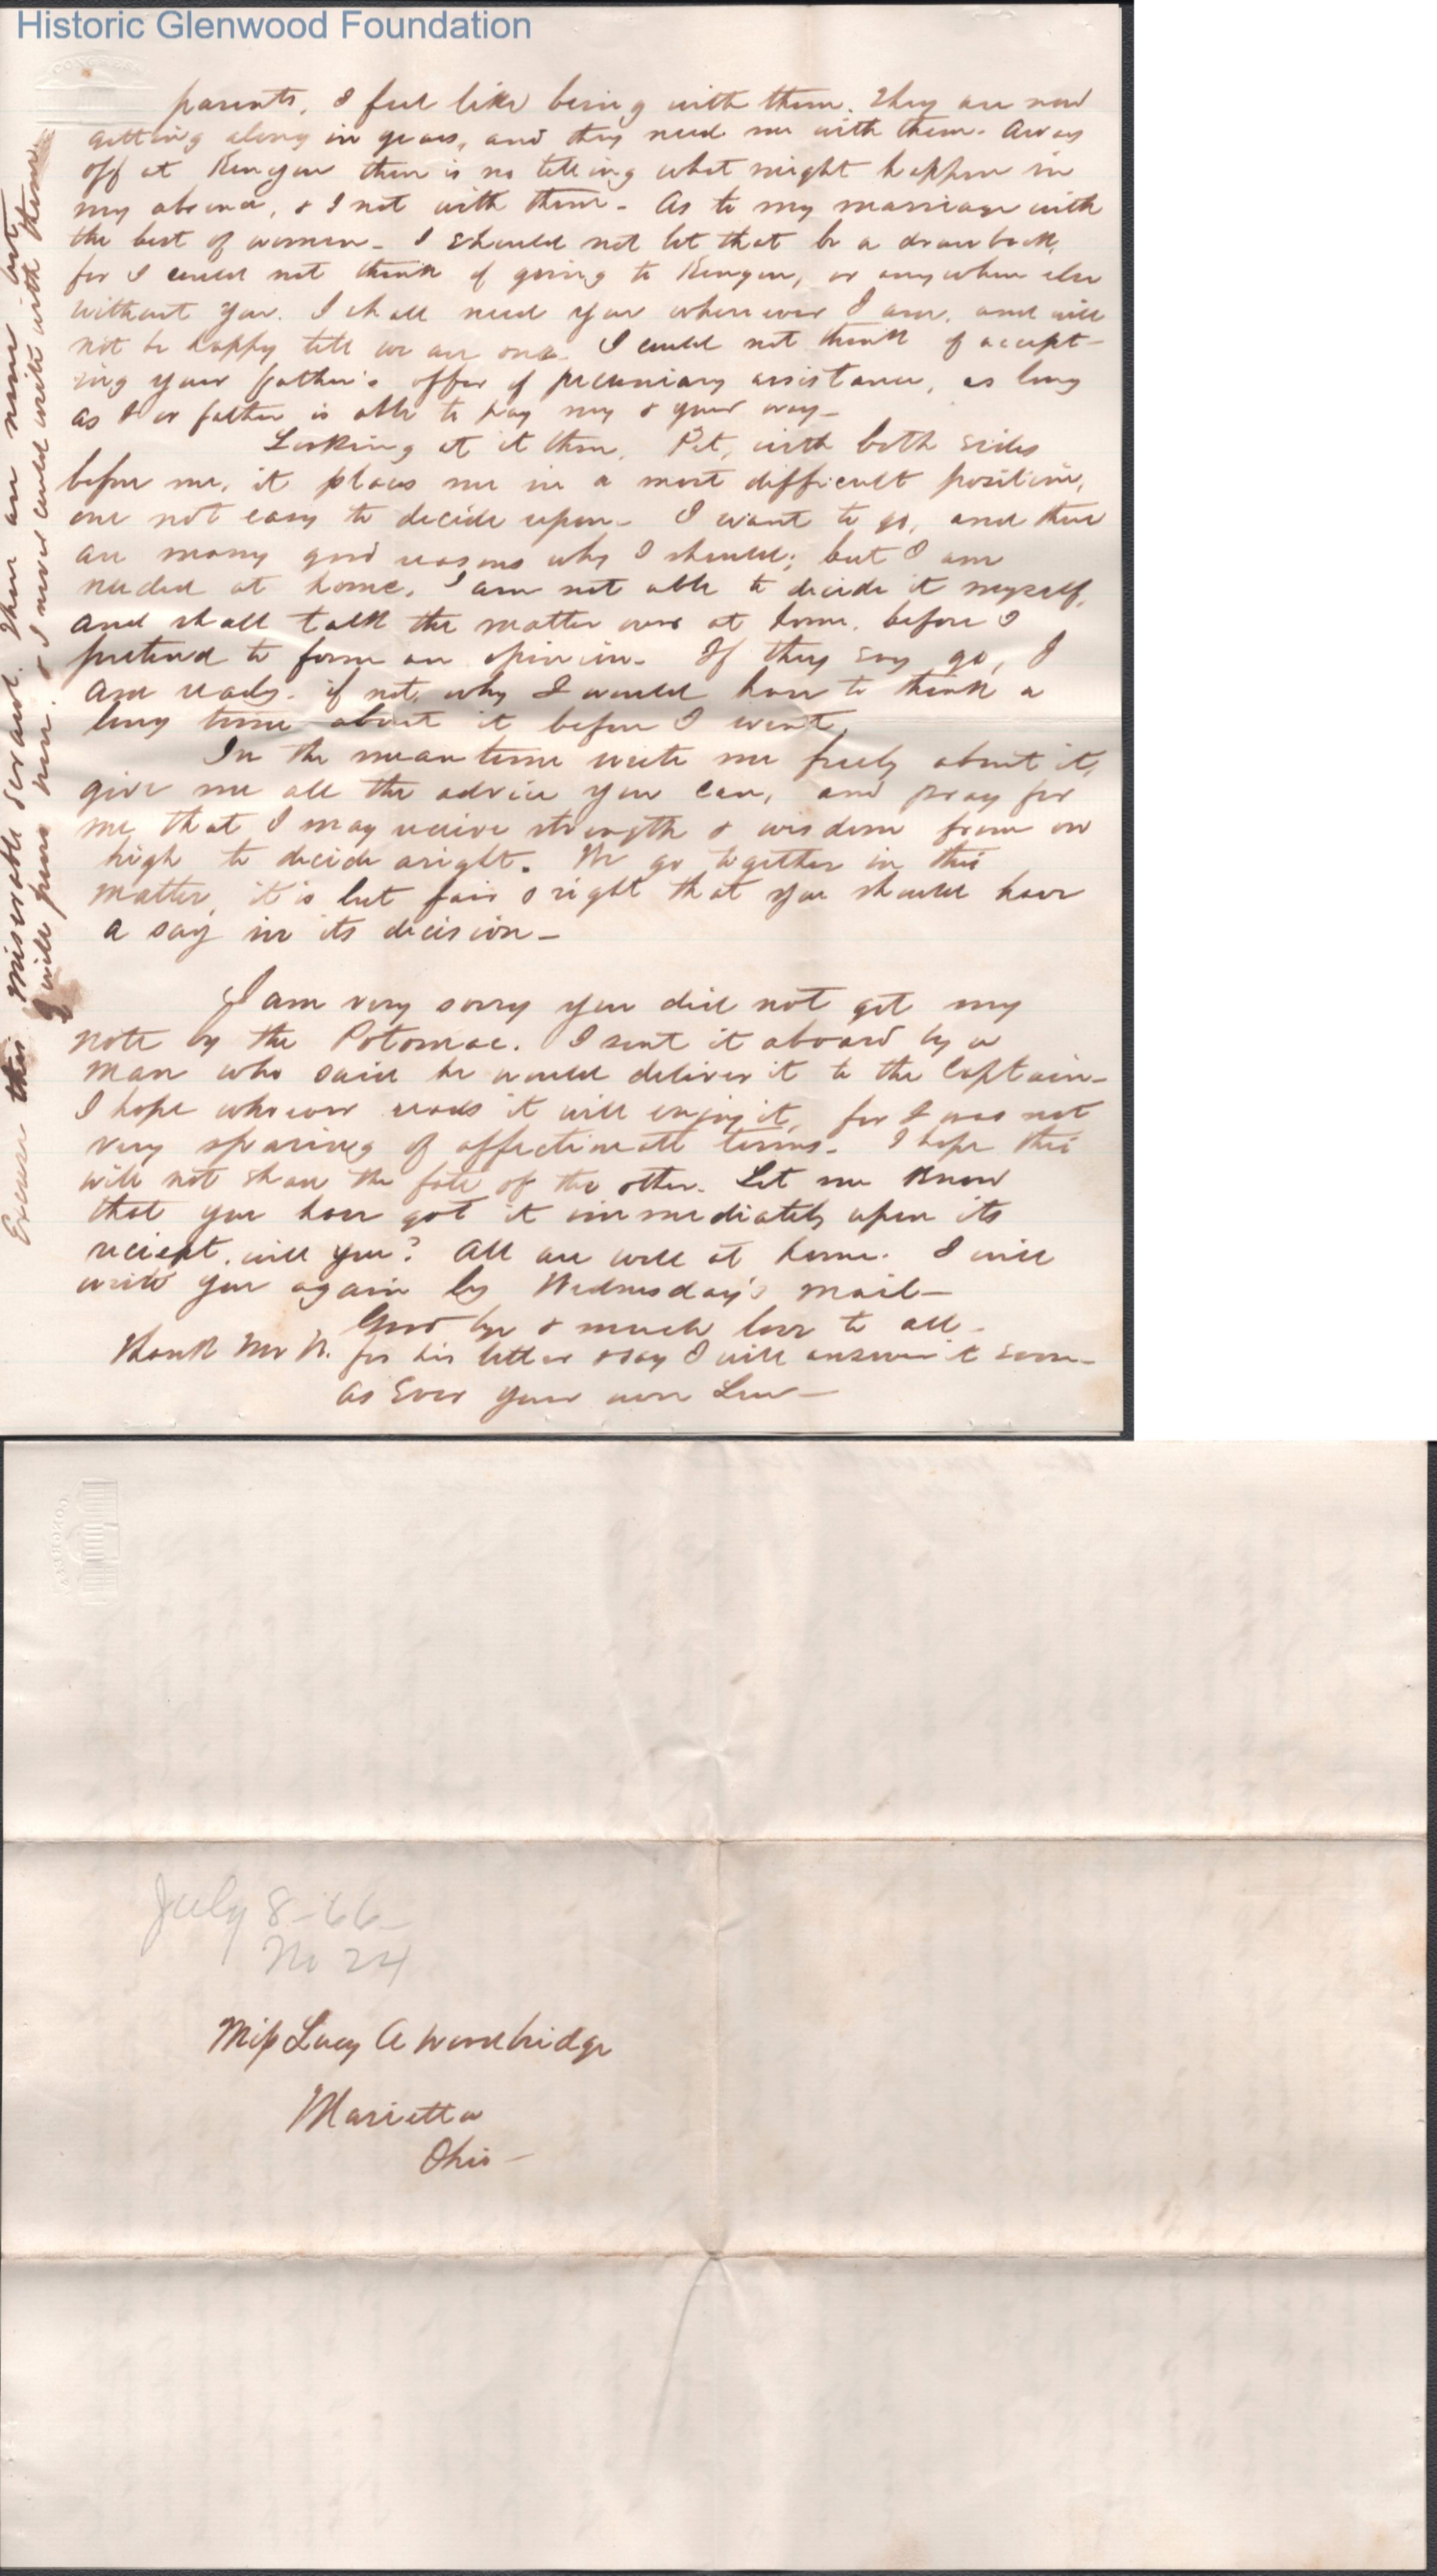 Historic Glenwood Foundation
CONGRESS
parents, I feel like being with them. They are now
getting along in years, and they need me with them. Away
off at Kenyon there is no telling what might happen in
my absence, & I not with them - As to my marriage with
the best of women - I should not let that be a drawback,
for I could not think of going to Kenyon, or anywhere else
without you. I shall need you wherever I am, and will
not be happy till we are one. I could not think of accept-
ing your father's offer of pecuniary assistance, as long
as I or father is able to pay my & your way -
Looking at it then, Pet, with both sides
before me, it places me in a most difficult position,
one not easy to decide upon - I want to go, and there
are many good reasons why I should; but I am
needed at home. I am not able to decide it myself,
and shall talk the matter over at home, before I
pretend to form an opinion - If they say go, I
am ready - if not, why I would have to think a
long time about it before I went.
In the meantime write me freely about it,
give me all the advice you can, and pray for
me, that I may receive strength & wisdom from on
high to decide aright. We go together in this
matter, it is but fair & right that you should have
a say in its decision -
I am very sorry you did not get my
note by the Potomac. I sent it aboard by a
man who said he would deliver it to the Captain -
I hope whoever reads it will enjoy it, for I was not
very sparing of affectionate terms - I hope this
will not share the fate of the other. Let me know
that you have got it immediately upon its
reciept, will you? All are well at home. I will
write you again by Wednesday's mail -
Good bye & much love to all -
Thank Mr W. for his letter & say I will answer it soon -
As Ever your own Lew -
Excuse this miserable scrawl. There are none but
quill pens here. & I never could write with them.
CONGRESS
July 8 - 66 -
No 24
Miss Lucy A Woodbridge
Marietta
Ohio -